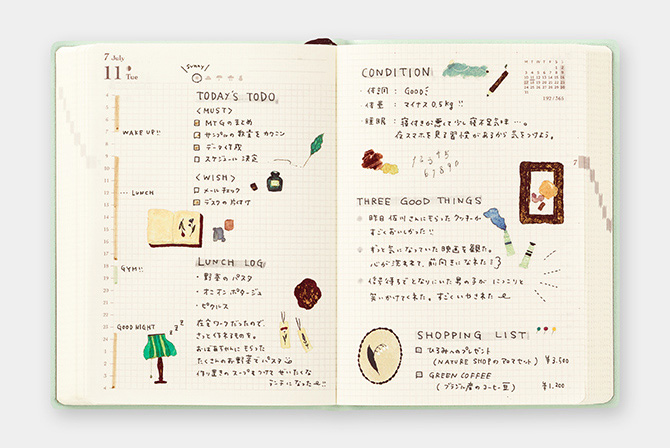 7 July
11 Tue
Sunny
TODAY'S TODO
<MUST>
MTGのまとめ
サンプルの数量をカクニン
データ作成
スケジュール決定
<WISH>
メールチェック
デスクの片付け
WAKE UP!!
LUNCH
GYM!!
GOOD NIGHT
zzz
LUNCH LOG
・野菜のパスタ
・オニオンポタージュ
・ピクルス
在宅ワークだったので、
さっと作れるものを。
おばあちゃんにもらった
たくさんのお野菜でパスタ
作り置きのスープもつけて ぜいたくな
ランチになった!!
CONDITION
・体調 : Good!
・体重 : マイナス 0.5kg!!
・睡眠 : 寝付きが悪くて少し寝不足気味…。
夜スマホを見る習慣があるから気をつけよう。
192/365
7
1 2 3 4 5
6 7 8 9 0
THREE GOOD THINGS
昨日 佐川さんにもらったクッキーが
すごくおいしかった!!
ずっと気になっていた映画を観た。
心が洗われて、前向きになれた!
信号待ちでとなりにいた男の子が にっこりと
笑いかけてくれた。すごくいやされた
SHOPPING LIST
ひろみへのプレゼント
(NATURE SHOPのアロマセット) ¥3,500
GREEN COFFEE
(ブラジル産のコーヒー豆) ¥1,200